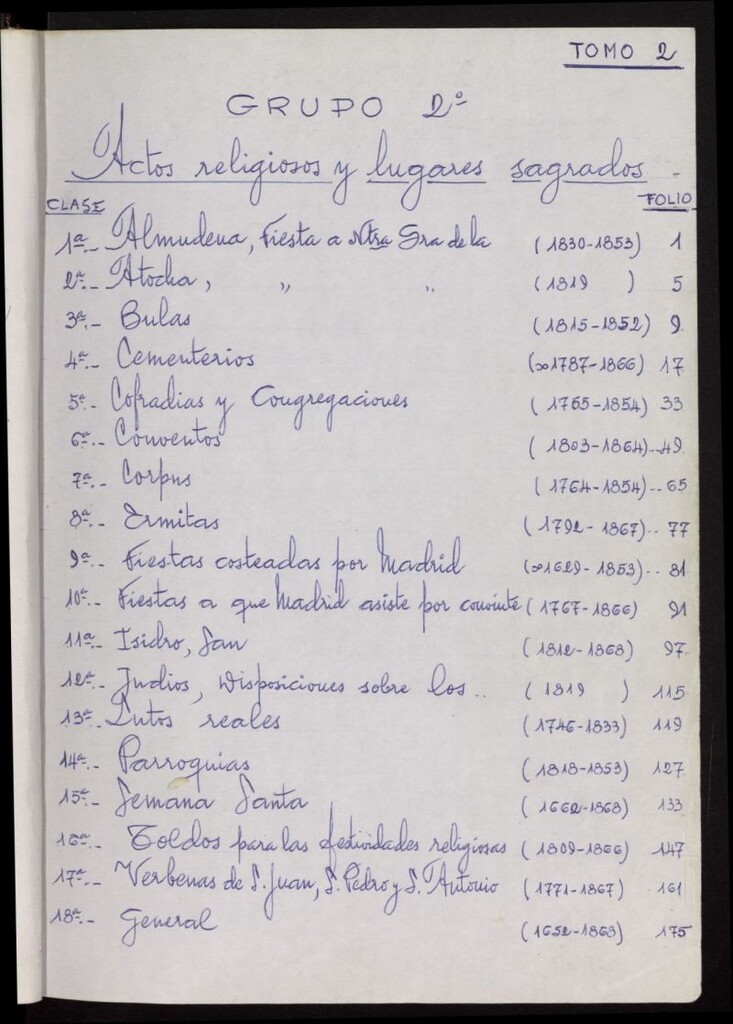 TOMO 2
GRUPO 2º
Actos religiosos y lugares sagrados.
CLASE FOLIO
1ª.- Almudena, Fiesta a Ntra Sra de la (1830-1853) 1
2ª.- Atocha, " " (1819 ) 5
3ª.- Bulas (1815-1852) 9
4ª.- Cementerios (∞1787-1866) 17
5ª.- Cofradias y Congregaciones (1765-1854) 33
6ª.- Conventos (1803-1864)..49
7ª.- Corpus (1764-1854)..65
8ª.- Ermitas (1792-1867)..77
9ª.- Fiestas costeadas por Madrid (∞1629-1853)..81
10ª.- Fiestas a que Madrid asiste por convinte (1767-1866) 91
11ª.- Isidro, San (1812-1868) 97
12ª.- Judios, Disposiciones sobre los.. (1819 ) 115
13ª.- Lutos reales (1746-1833) 119
14ª.- Parroquias (1818-1853) 127
15ª.- Semana Santa (1662-1868) 133
16ª.- Toldos para las festividades religiosas (1809-1866) 147
17ª.- Verbenas de S. Juan, S. Pedro y S. Antonio (1771-1867) 161
18ª.- General (1652-1868) 175